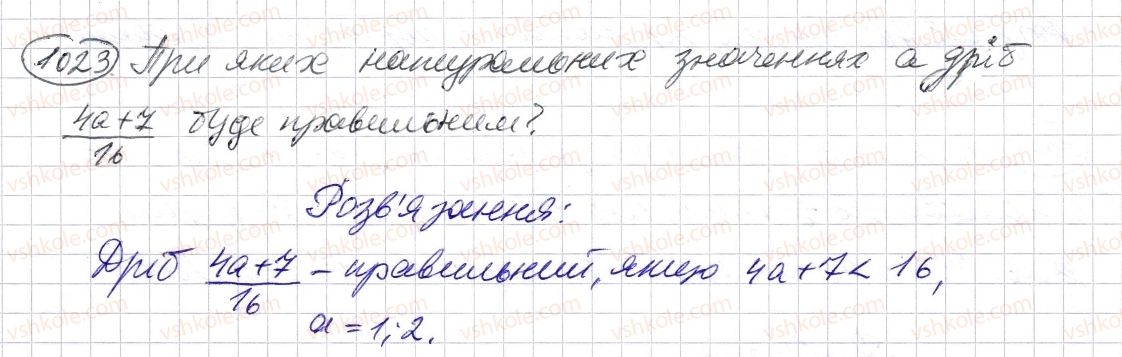 1023. При яких натуральних значеннях a дріб
4a+7/16 буде правильним?
Розв'язання:
Дріб 4a+7/16 – правильний, якщо 4a+7 < 16,
a = 1; 2.